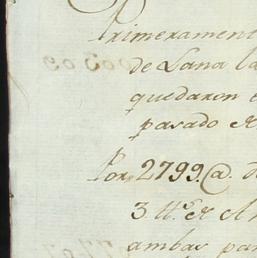 Primerament
de Lana la
quedaron e
pasado
Por 2799 @. d
3 tt.s
ambas par